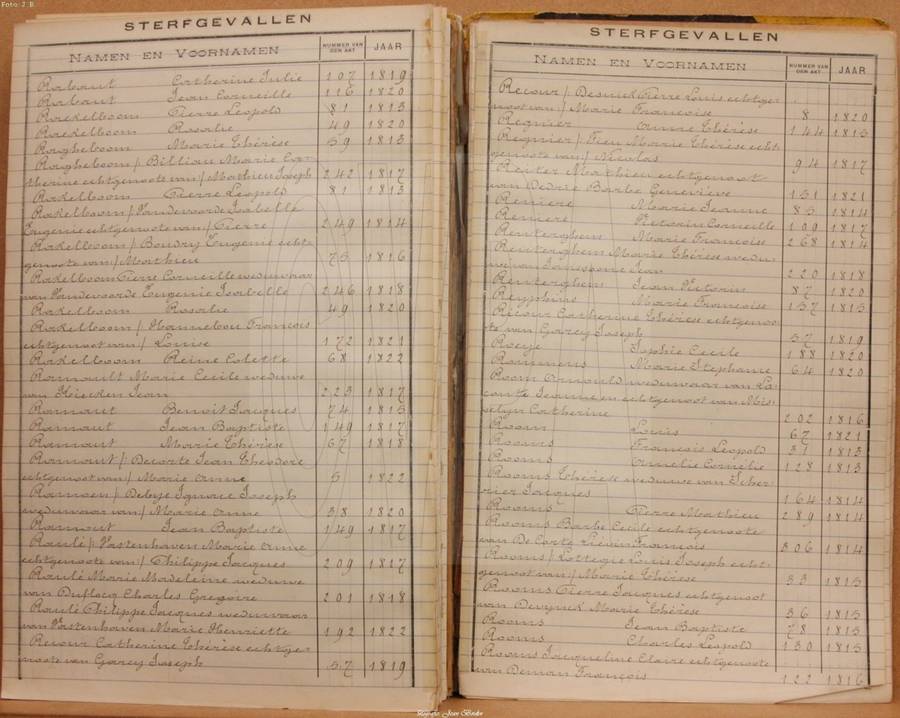 Foto: J. B.
STERFGEVALLEN
NAMEN EN VOORNAMEN NUMMER VAN DEN AKT JAAR
Rabaut Catherine Julie 107 1819
Rabaut Jean Corneille 116 1820
Raekelboom Pierre Léopold 81 1813
Raekelboom Rosalie 49 1820
Ragheboom Marie Thérèse 59 1813
Ragheboom / Billiau Marie Ca-
therine echtgenoote van / Mathieu Joseph 242 1817
Rakelboom Pierre Léopold 81 1813
Rakelboom / Vandevoorde Isabelle
Eugenie echtgenoote van / Pierre 249 1814
Rakelboom / Boudry Eugenie echt-
genoote van / Mathieu 75 1816
Rakelboom Pierre Corneille weduwaar
van Vandevoorde Eugenie Isabelle 246 1818
Rakelboom Rosalie 49 1820
Rakelboom / Hannebou François
echtgenoot van / Louise 172 1821
Rakelboom Reine Colette 68 1822
Ramault Marie Cecile weduwe
van Jean 223 1817
Ramaut Benoit Jacques 74 1815
Ramaut Jean Baptiste 149 1817
Ramaut Marie Thérèse 67 1818
Ramaut / Decorte Jean Theodore
echtgenoot van / Marie Anne 5 1822
Ramoen / Debije Ignace Joseph
weduwaar van / Marie Anne 38 1820
Ramout Jean Baptiste 149 1817
Raulé / Vastenhaven Marie Anne
echtgenoote van / Philippe Jacques 209 1817
Raulé Marie Madeleine weduwe
van Duflacq Charles Gregoire 201 1818
Raulé Philippe Jacques weduwaar
van Vastenhaven Marie Henriette 192 1822
Recour Catherine Thérèse echtge-
noote van Garcy Joseph 57 1819
STERFGEVALLEN
NAMEN EN VOORNAMEN NUMMER VAN DEN AKT JAAR
Recour / Desmick Pierre Louis echtge-
noot van / Marie Françoise 8 1820
Regnier Anne Thérèse 144 1815
Regnier / Marie Thérèse echt-
genoote van / Nicolas 94 1817
Renier Mathieu echtgenoot
van Dedrie Barbe Geneviève 151 1821
Reniere Marie Jeanne 85 1814
Reniere Victorin Corneille 109 1817
Renterghem Marie Françoise 268 1814
Renterghem Marie Thérèse wedu-
we van Janssoone Jean 220 1818
Renterghem Jean Victorin 87 1820
Reyphins Marie Françoise 157 1815
Récour Catherine Thérèse echtgenoo-
te van Garcy Joseph 57 1819
Roeije Sophie Cecile 188 1820
Rommens Marie Stephanie 64 1820
Room Arnould weduwaar van La-
comte Jeanne en echtgenoot van Mis-
selyn Catherine 202 1816
Room Louis 67 1821
Rooms François Léopold 31 1813
Rooms Amelie Cornélie 128 1813
Rooms Thérèse weduwe van Scher-
rier Jacques 164 1814
Rooms Pierre Mathieu 289 1814
Rooms Barbe Cecile echtgenoote
van De Corte Liévin François 306 1814
Rooms / Lottegie Louis Joseph echt-
genoot van / Marie Thérèse 33 1815
Rooms Pierre Jacques echtgenoot
van Devynck Marie Thérèse 36 1815
Rooms Jean Baptiste 78 1815
Rooms Charles Léopold 130 1815
Rooms Jacqueline Claire echtgenoote
van Deman François 122 1816